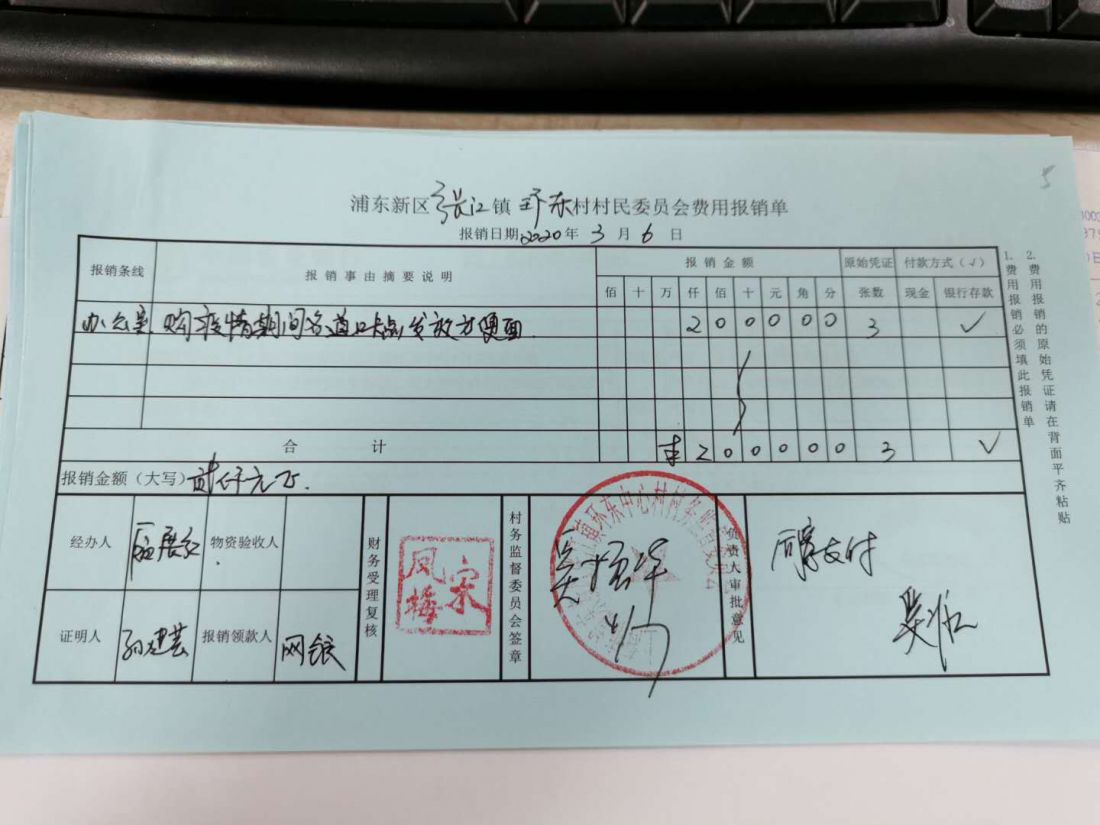 浦东新区张江镇环东村村民委员会费用报销单
报销日期2020年3月6日
报销条线 报销事由摘要说明 报销金额 原始凭证 付款方式(√)
佰 十 万 仟 佰 十 元 角 分 张数 现金 银行存款
办公室 购疫情期间各道口卡点发放方便面 2 0 0 0 0 0 3 √
合计 ¥ 2 0 0 0 0 0 3 √
报销金额(大写)贰仟元正.
经办人 物资验收人
财务受理复核
宋凤梅
村务监督委员会签章
吴
负责人审批意见
同意支付
证明人 孙建芸 报销领款人 网银
1. 费用报销必须填此报销单
2. 费用报销的原始凭证请在背面平齐粘贴
5